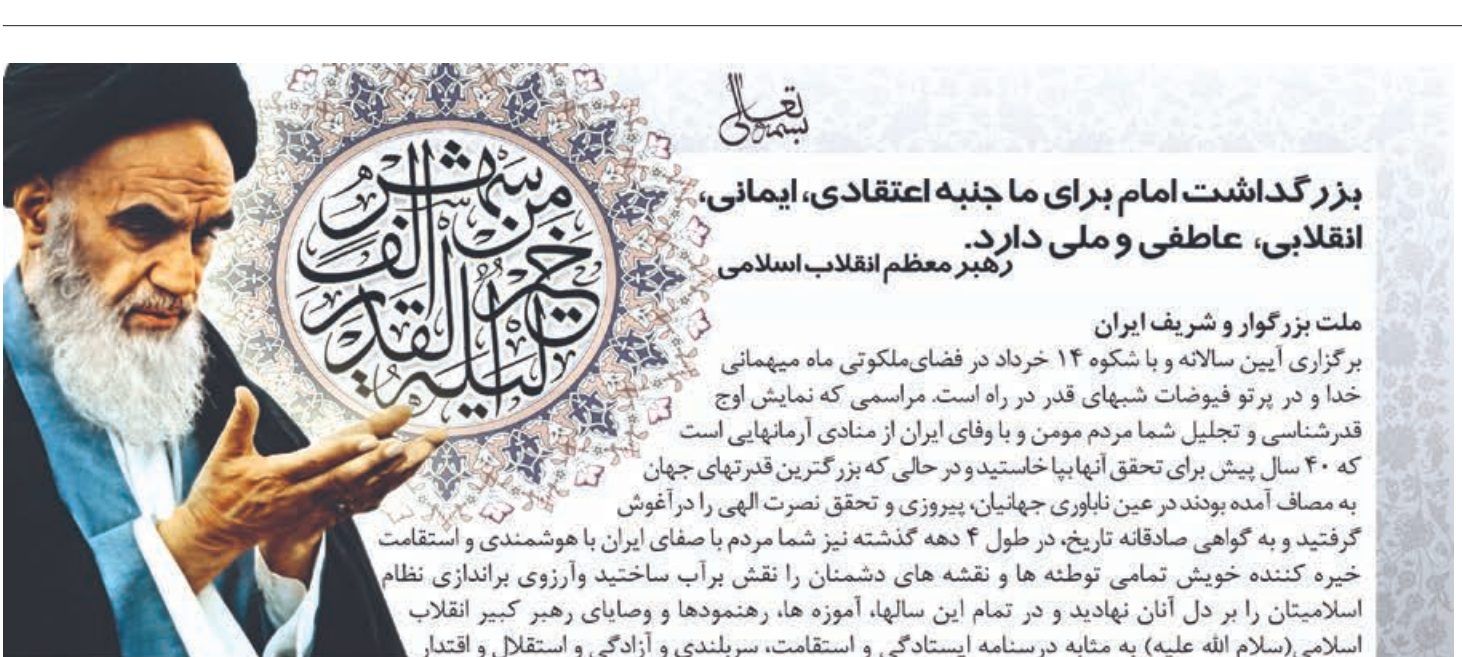 بسمه تعالی
لیلة القدر خیر من الف شهر
بزرگداشت امام برای ما جنبه اعتقادی، ایمانی،
انقلابی، عاطفی و ملی دارد.
رهبر معظم انقلاب اسلامی
ملت بزرگوار و شریف ایران
برگزاری آیین سالانه و با شکوه ۱۴ خرداد در فضای‌ملکوتی ماه میهمانی
خدا و در پرتو فیوضات شبهای قدر در راه است. مراسمی که نمایش اوج
قدرشناسی و تجلیل شما مردم مومن و با وفای ایران از منادی آرمانهایی است
که ۴۰ سال پیش برای تحقق آنها بپا خاستید و در حالی که بزرگترین قدرتهای جهان
به مصاف آمده بودند در عین ناباوری جهانیان، پیروزی و تحقق نصرت الهی را در آغوش
گرفتید و به گواهی صادقانه تاریخ، در طول ۴ دهه گذشته نیز شما مردم با صفای ایران با هوشمندی و استقامت
خیره کننده خویش تمامی توطئه ها و نقشه های دشمنان را نقش برآب ساختید وآرزوی براندازی نظام
اسلامیتان را بر دل آنان نهادید و در تمام این سالها، آموزه ها، رهنمودها و وصایای رهبر کبیر انقلاب
اسلامی(سلام الله علیه) به مثابه درسنامه ایستادگی و استقامت، سربلندی و آزادگی و استقلال و اقتدار